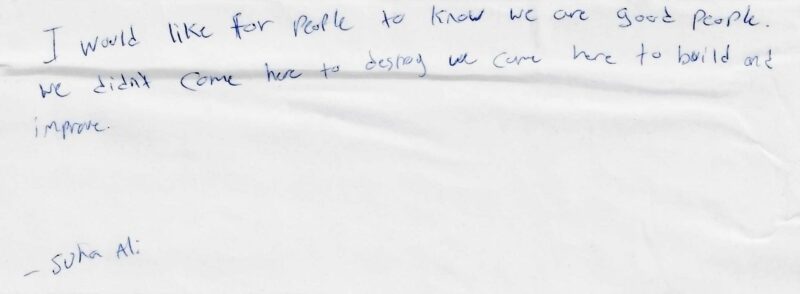 I would like for people to know we are good people.
we didn't come here to destroy we came here to build and
improve.
- Suha Ali